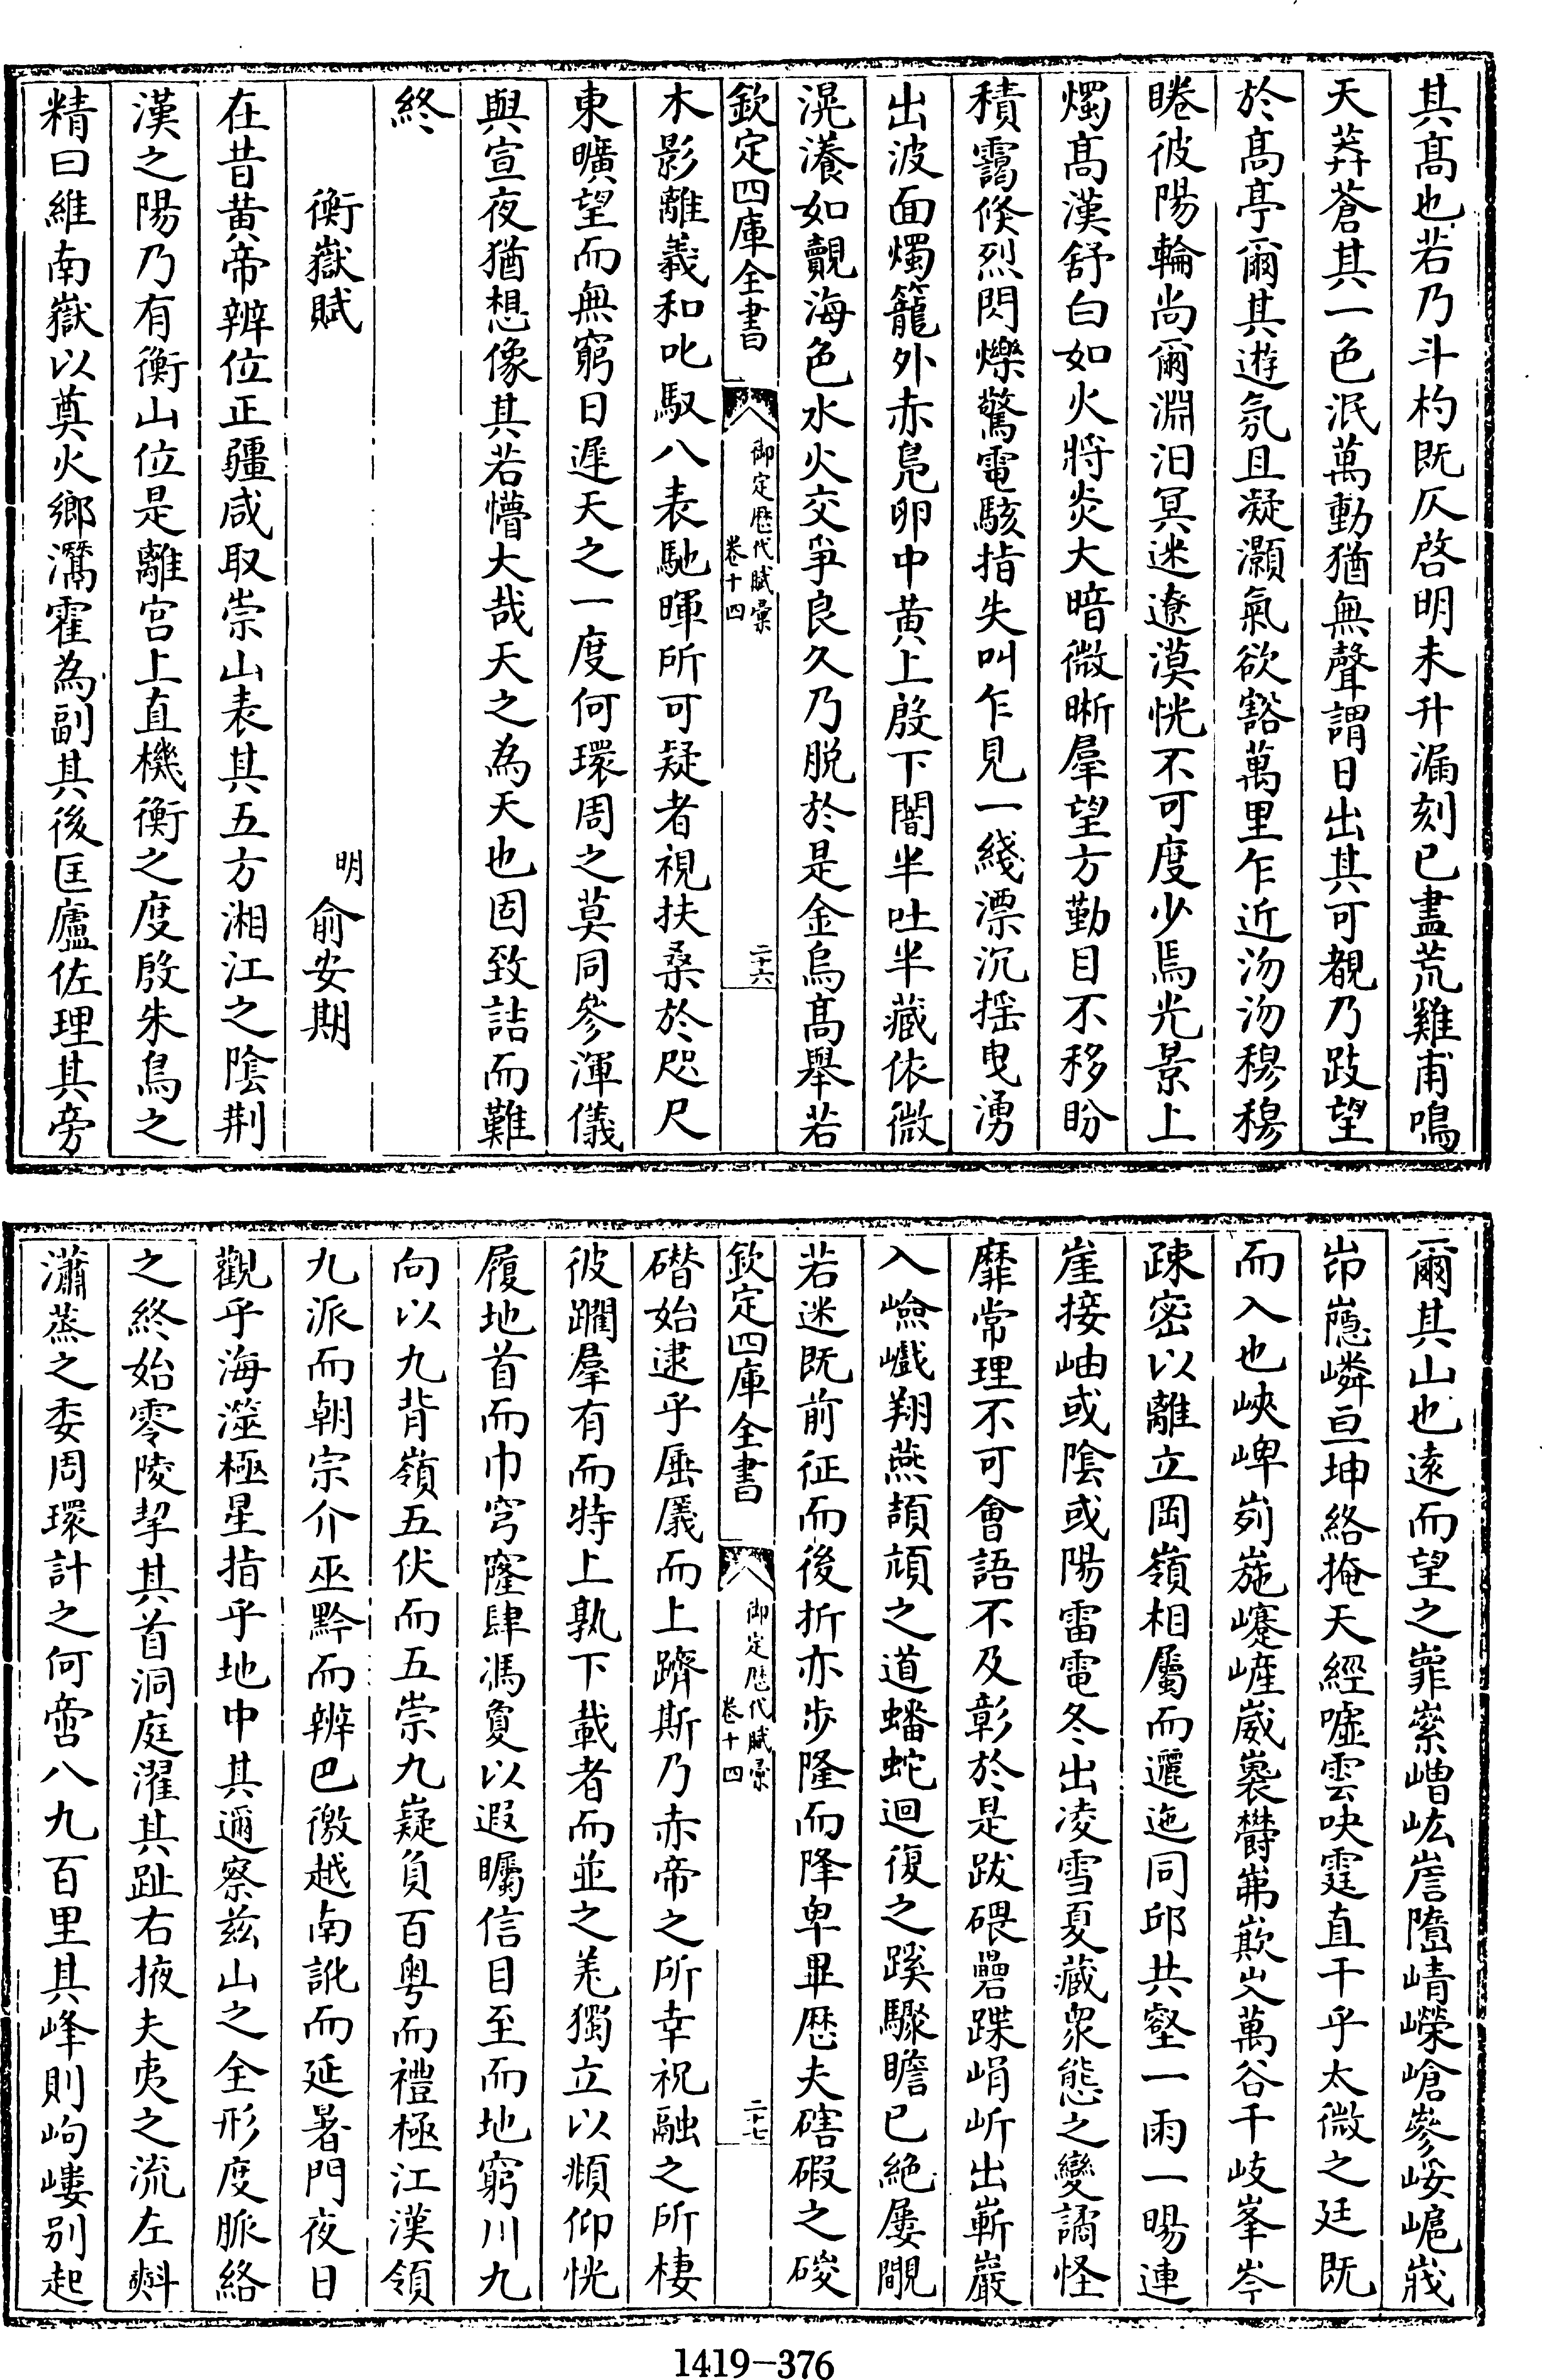 其髙也若乃斗杓既仄啓明未升漏刻已盡荒雞甫鳴
天莽蒼其一色泯萬動猶無聲謂日出其可覩乃跂望
於髙亭爾其遊氛且凝灝氣欲豁萬里乍近沕沕穆穆
睠彼陽輪尚爾淵汨冥迷遼漠恍不可度少焉光景上
燭髙漢舒白如火將炎大暗微晰羣望方勤目不移盼
積靄倐烈閃爍驚電駭指失叫乍見一綫漂沉摇曳湧
出波面燭籠外赤鳬卵中黄上殷下闇半吐半藏依微
滉瀁如覿海色水火交爭良久乃脱於是金烏髙舉若
欽定四庫全書
御定歴代賦彙
卷十四
二十六
木影離羲和叱馭八表馳暉所可疑者視扶桑於咫尺
東曠望而無窮日遲天之一度何環周之莫同參渾儀
與宣夜猶想像其若懵大哉天之為天也固致詰而難
終
衡嶽賦
明俞安期
在昔黄帝辨位正疆咸取崇山表其五方湘江之陰荆
漢之陽乃有衡山位是離宫上直機衡之度殷朱鳥之
精曰維南嶽以奠火鄉灊霍為副其後匡廬佐理其旁
爾其山也遠而望之罪崣嶆㟄峇隵崝嶸嶒嵾峖㟴峩
岇嶾嶙亘坤絡掩天經噓雲吷霆直干乎太微之廷既
而入也峽崥峛崺㠍嵼崴裊欝岪㰞岌萬谷千岐峯岑
疎密以離立岡嶺相屬而邐迤同邱共壑一雨一暘連
崖接岫或陰或陽雷電冬出凌雪夏藏衆態之變譎怪
靡常理不可會語不及彰於是跋碨礨蹀㟓岓出嶄巖
入嶮巇翔燕頡頏之道蟠蛇迴復之蹊驟瞻已絶屢覸
若迷既前征而後折亦步隆而降卑畢歴夫磍磍之碐
欽定四庫全書
御定歴代賦彙
卷十四
二十七
磛始逮乎厜㕒而上躋斯乃赤帝之所幸祝融之所棲
彼躙羣有而特上孰下載者而並之羌獨立以頫仰恍
履地首而巾穹窿肆馮敻以遐矚信目至而地窮川九
向以九背嶺五伏而五崇九嶷負百粤而禮極江漢領
九派而朝宗介巫黔而辨巴徼越南訛而延暑門夜日
觀乎海澨極星指乎地中其邇察兹山之全形度脈絡
之終始零陵挈其首洞庭濯其趾右掖夫夷之流左㪺
瀟蒸之委周環計之何啻八九百里其峰則岣嶁别起
1419-376